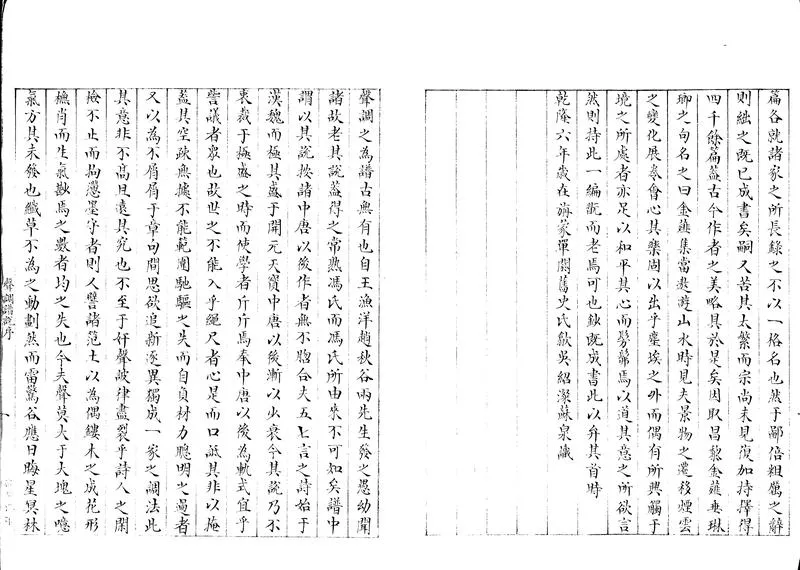 篇各就諸家之所長錄之不以一格名也然于鄙倍粗厲之辭
則絀之既已成書矣嗣又苦其太繁而宗尚未見復加持擇得
四千餘篇蓋古今作者之美略具於是矣因取昌黎金薤垂琳
瑯之句名之曰金薤集當遨遊山水時見夫景物之遷移煙雲
之變化展卷會心其樂固以出乎塵埃之外而偶有所興觸于
境之所處者亦足以和平其心而髣髴焉以道其意之所欲言
然則持此一編翫而老焉可也鈔既成書此以弁其首時
乾隆六年歲在旃蒙單閼舊史氏歙吳紹澯蘇泉識
聲調之為譜古無有也自王漁洋趙秋谷兩先生發之愚幼聞
諸故老其說蓋得之常熟馮氏而馮氏所由來不可知矣譜中
謂以其說按諸中唐以後作者無不脗合夫五七言之詩始于
漢魏而極其盛于開元天寶中唐以後漸以出衰今其說乃不
衷裁于極盛之時而使學者斤斤焉奉中唐以後為軌式宜乎
訾議者眾也故世之不能入乎繩尺者心是而口詆其非以掩
蓋其空疎無據不能範圍馳驅之失而自負材力聰明之過者
又以為不屑屑于章句間思欲追新逐異獨成一家之調法此
其意非不高且遠其究也不至于奸聲詖律盡裂乎詩人之閑
檢不止而拘懘墨守者則人譬諸范土以為偶鏤木之成花形
橅肖而生氣歇焉之數者均之失也今夫聲莫大于大塊之噫
氣方其未發也纖草不為之動劃然而雷驚谷應日晦星冥林
聲調譜說序